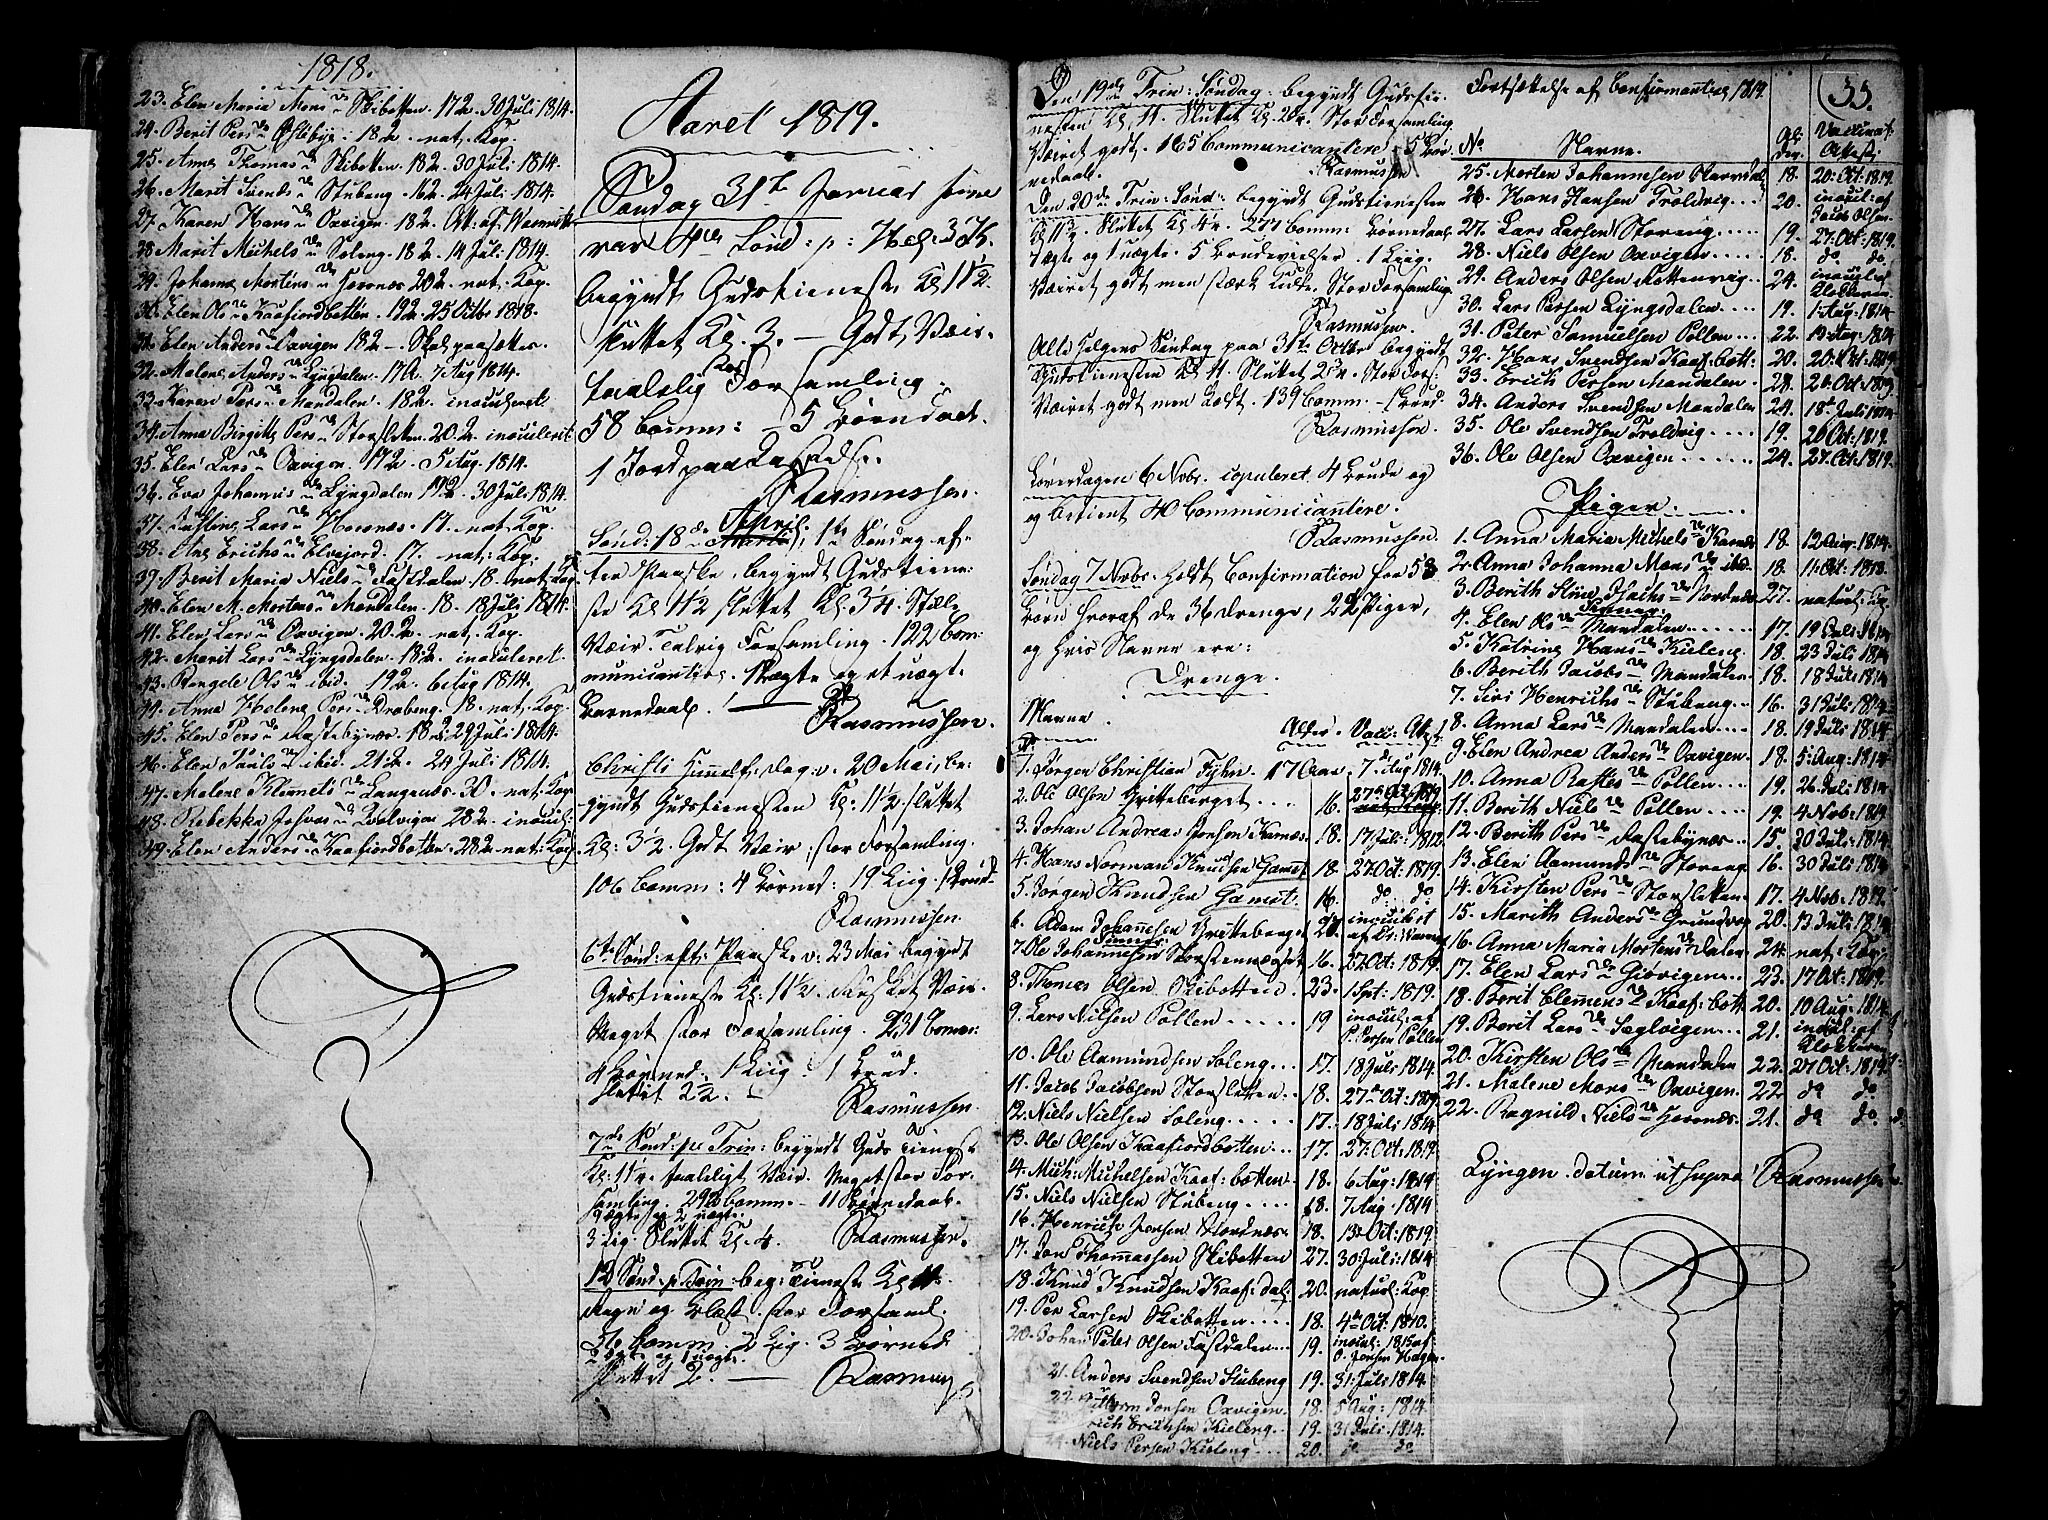 1818.
23. Elen Maria Mons d. Skibotten. 17 2. 30 Juli 1814.
24. Berit Pers d. 18 2. nat. Kop.
25. Anne Thomas d. Skibotten. 18 2. 30 Juli 1814.
26. Marit Svends d. Stubeng. 16 2. 24 Juli 1814.
27. Karen Hans d. Oxvigen. 18 2. Att. af
28. Marit Michels d. Soleng. 18 2. 14 Juli 1814.
29. Johanna Mortens d. Horsnæs 20 2. nat. Kop.
30. Elen Ols d. Kaafiordbotten. 19 2. 25 Octbr 1818.
31. Elen Anders d. Oxvigen 18 2.
32. Malene Anders d. Lyngdalen. 17 2. 7 Aug 1814.
33. Karen Pers d. Mandalen. 18 2. inoculeret.
34. Anna Birgitte Pers d. Storsletten. 20 2. inoculeret
35. Elen Lars d. Oxvigen. 17 2. 5 Aug. 1814.
36. Eva Johannis d. Lyngdalen 17 2. 30 Juli 1814.
37. Lars d. Horsnæs. 17. nat. Kop.
38. Ane Erichs d. Elvejord. 17. nat. Kop.
39. Berit Maria Niels d. Fastdalen. 18. nat. Kop.
40. Elen M. Mortens d. Mandalen. 18. 18 Juli 1814.
41. Elen Lars d. Oxvigen. 20 2. nat. Kop.
42. Marit Lars d. Lyngsdalen. 18 2. inoculeret.
43. Ols d. ibid. 19 2. 6 Aug 1814.
44. Anna Helena Pers d. 18. nat. Kop.
45. Elen Pers d. Rastebynæs. 18 2. 29 Juli 1814.
46. Elen Pauls d. ibid. 21 2. 24 Juli 1814.
47. Malene Klemets d. 30. nat. Kop.
48. Rebekka Josvas d. 28 2. inocul:
49. Elen Anders d. Kaafiordbotten. 28 2. nat: Kop.
Aaret 1819.
Søndag 31te Januar som
var 4de Sønd: p: Hel. 3 K.
begyndt Gudstieneste Kl 11½.
sluttet Kl. 3. — Godt Væir.
taalelig stor Forsamling.
58 Comm: — 5 Børnedaab.
1 Jordpaakastelse.
Rasmussen.
Sønd: 18de April, 1te Søndag ef-
ter Paaske, begyndt Gudstiene-
ste Kl 11½ sluttet Kl. 3¼. Stille
Væir. Talrig Forsamling. 122 Com:
municantere. 1 ægte og et uægte
Barnedaab.
Rasmussen.
Christi Himmelf: Dag: v. 20 Mai, be-
gyndt Gudstienesten Kl: 11½. sluttet
Kl: 3½. Godt Væir, stor Forsamling.
106 Comm: 4 Børned: 19 Liig. 1
Rasmussen
6te Sønd: eft: Paaske v: 23 Mai begyndt
Gudstieneste Kl: 11½. Væir.
Meget stor Forsamling. 231 Comm:
4 Børned. 1 Liig. 1 Brud.
sluttet 2½. —
Rasmussen.
7de Sønd: p. Trin: begyndt Guds Tieneste
Kl: 11¼. taaleligt Væir. Meget stor For-
samling. 292 Comm. — 11 Børnedaab.
9 ægte og 2 uægte.
3 Lig. Sluttet Kl. 4. Rasmussen.
12 Sønd: p Trin: beg: Tieneste Kl 11.
Regn og Blæst. stor Forsaml.
36 Comm. 2 Lig. 3 Børned
2 ægte og 1 uægte.
sluttet 2. — Rasmussen
Den 19de Trin: Søndag: begyndt Gudstie-
nesten Kl. 11. Sluttet Kl. 2¼. Stor Forsamling
Væiret godt. 165 Communicantere 5 Bør-
nedaab. Rasmussen
Den 20de Trin: Sønd: begyndt Gudstienesten
Kl 11½. Sluttet Kl 4¼. 277 Comm: Børnedaab
7 ægte og 1 uægte. 5 Brudevielser. 1 Liig.
Væiret godt men stærk Kulde. Stor Forsamling.
Rasmussen.
Alle Helgens Søndag paa 31te Octbr begyndt
Gudstienesten Kl 11. Sluttet 2¼. Stor Fors:
Væiret godt men Koldt. 139 Comm. — 1 Brud.
Rasmussen.
Løverdagen 6 Novbr. copuleret 4 Brude og
og betient 40 Communicantere.
Rasmussen.
Søndag 7 Novbr. Holdt Confirmation for 58
Børn hvoraf de 36 Drenge, 22 Piger,
og hvis Navne ere:
Drenge.
Navne. Alder. Vacc: Att:
1. Jørgen Christian Fyhn. 17 Aar. 7de Aug 1814.
2. Ole Olsen Gritteberget . . . 16. 27de Oct. 1819
3. Johan Andreas Jensen Karnæs. 18. 17 Juli: 1812.
4. Hans Norman Knudsen Gamst 18. 27 Oct: 1819.
5. Jørgen Knudsen Gamst. 16. do do
6. Adam Johannesen Gritteberget 20. inoculert
7. Ole Johannesen Storstennæsset 16. 22 Oct: 1819.
8. Thomas Olsen Skibotten. . 23. 1 Spt: 1819.
9. Lars Nilsen Pollen . . . . . 19 inocul: af P. Persen Pollen
10. Ole Aamundsen Soleng . . . 17. 18 Juli 1814.
11. Jacob Jacobsen Storsletten . 18. 27de Oct: 1819.
12. Niels Nielsen Soleng . . . 17. 18 Juli 1814.
13. Ole Olsen Kaafiordbotten . . . 17. 27 Oct: 1819.
14. Mich: Michelsen Kaaf: botten. 18. 6 Aug: 1814
15. Niels Nielsen Stubeng . . . . 18. 7 Aug. 1814
16. Henrich Jensen Nordnæs. . 18. 13 Oct: 1819.
17. Jon Thomassen Skibotten 27. 30 Juli: 1814.
18. Knud Knudsen Kaaf: dal. 20. natur: Kop.
19. Per Larsen Skibotten . . . . 18. 4de Oct: 1810.
20. Johan Peter Olsen Fastdalen . . . 19. inocul: 1815 af O. Jensen Hagen.
21. Anders Svendsen Stubeng 19. 31 Juli 1814.
22. Jonsen Oxvigen. 18. 5 Aug: 1814
23. Erich Erichsen Kieleng . . 19. 31 Juli: 1814.
24. Niels Persen Kieleng . . . 20. do do
Fortsættelse af Confirmantine 1819.
33.
No Navne. Al- der. Vaccinat. Attest
25. Morten Johannesen 18. 20 Oct: 1819.
26. Hans Hansen Troldvig . . . 20. inocul: af Jacob Olsen.
27. Lars Larsen Storeng . . . 19. 27 Oct: 1819.
28. Niels Olsen Oxvigen . . . . 18. do do
29. Anders Olsen Rottenvig . . . 24. inocul af Klokkeren.
30. Lars Persen Lyngsdalen . . . . 19. 1 Aug: 1814
31. Peter Samuelsen Pollen . . . . 22. 19 Aug: 1814
32. Hans Svendsen Kaaf: bott: 20. 20 Oct: 1819
33. Erich Persen Mandalen. 28. 21 Oct: 1819.
34. Anders Svendsen Mandalen 24. 18de Juli 1814.
35. Ole Svendsen Troldvig . . . . 19. 26 Oct: 1819.
36. Ole Olsen Oxvigen . . . . . . 24. 27 Oct: 1819.
Piger.
1. Anna Maria Michels d. Karnæs 18. 12 Aug: 1814.
2. Anna Johanna Mons d. 18. 11 Oct: 1818.
3. Berith Stina Isachs d. Nordnæs 27. natur: Ko.
4. Elen Ols d. Mandalen . . . . . 17. 19 Juli: 1814
5. Katrine Hans d. Kieleng. 18. 23 Juli 1814
6. Berith Jacobs d. Mandalen 18. 18 Juli: 1814
7. Siri Henrichs d. Stubeng . . . 16. 31 Juli: 1814
8. Anna Lars d. Mandalen . . 18. 19 Juli: 1814
9. Elen Andrea Anders d. Oxvigen 18. 5. Aug: 1814
10. Anna d. Pollen . . . 19. 26 Juli: 1814
11. Berith Niels d. Pollen . . . 19. 4 Nov: 1819
12. Berith Pers d. Rastebynæs . . 15. 30 Juli: 1814
13. Elen Aamunds d. Storeng 16. 30 Juli: 1814
14. Kirsten Pers d. Storsletten . 17. 4 Nov: 1819.
15. Marith Anders d. Grundvog 20. 13 Juli: 1814
16. Anna Maria Mortens d. Dalen 24. nat: Kop.
17. Elen Lars d. Giøvigen . . . 23. 17 Oct: 1819.
18. Berit Clemens d. Kaaf: bott 20. 10 Aug: 1814
19. Berit Lars d. Seglvigen . . . 21. inocul: af Klokkeren
20. Kirsten Ols d. Mandalen 22. 27 Oct: 1819.
21. Malene Mons d. Oxvigen. 22. do do
22. Ragnild Niels d. Horsnæs. 21. do do
Lyngen datum ut supra Rasmussen